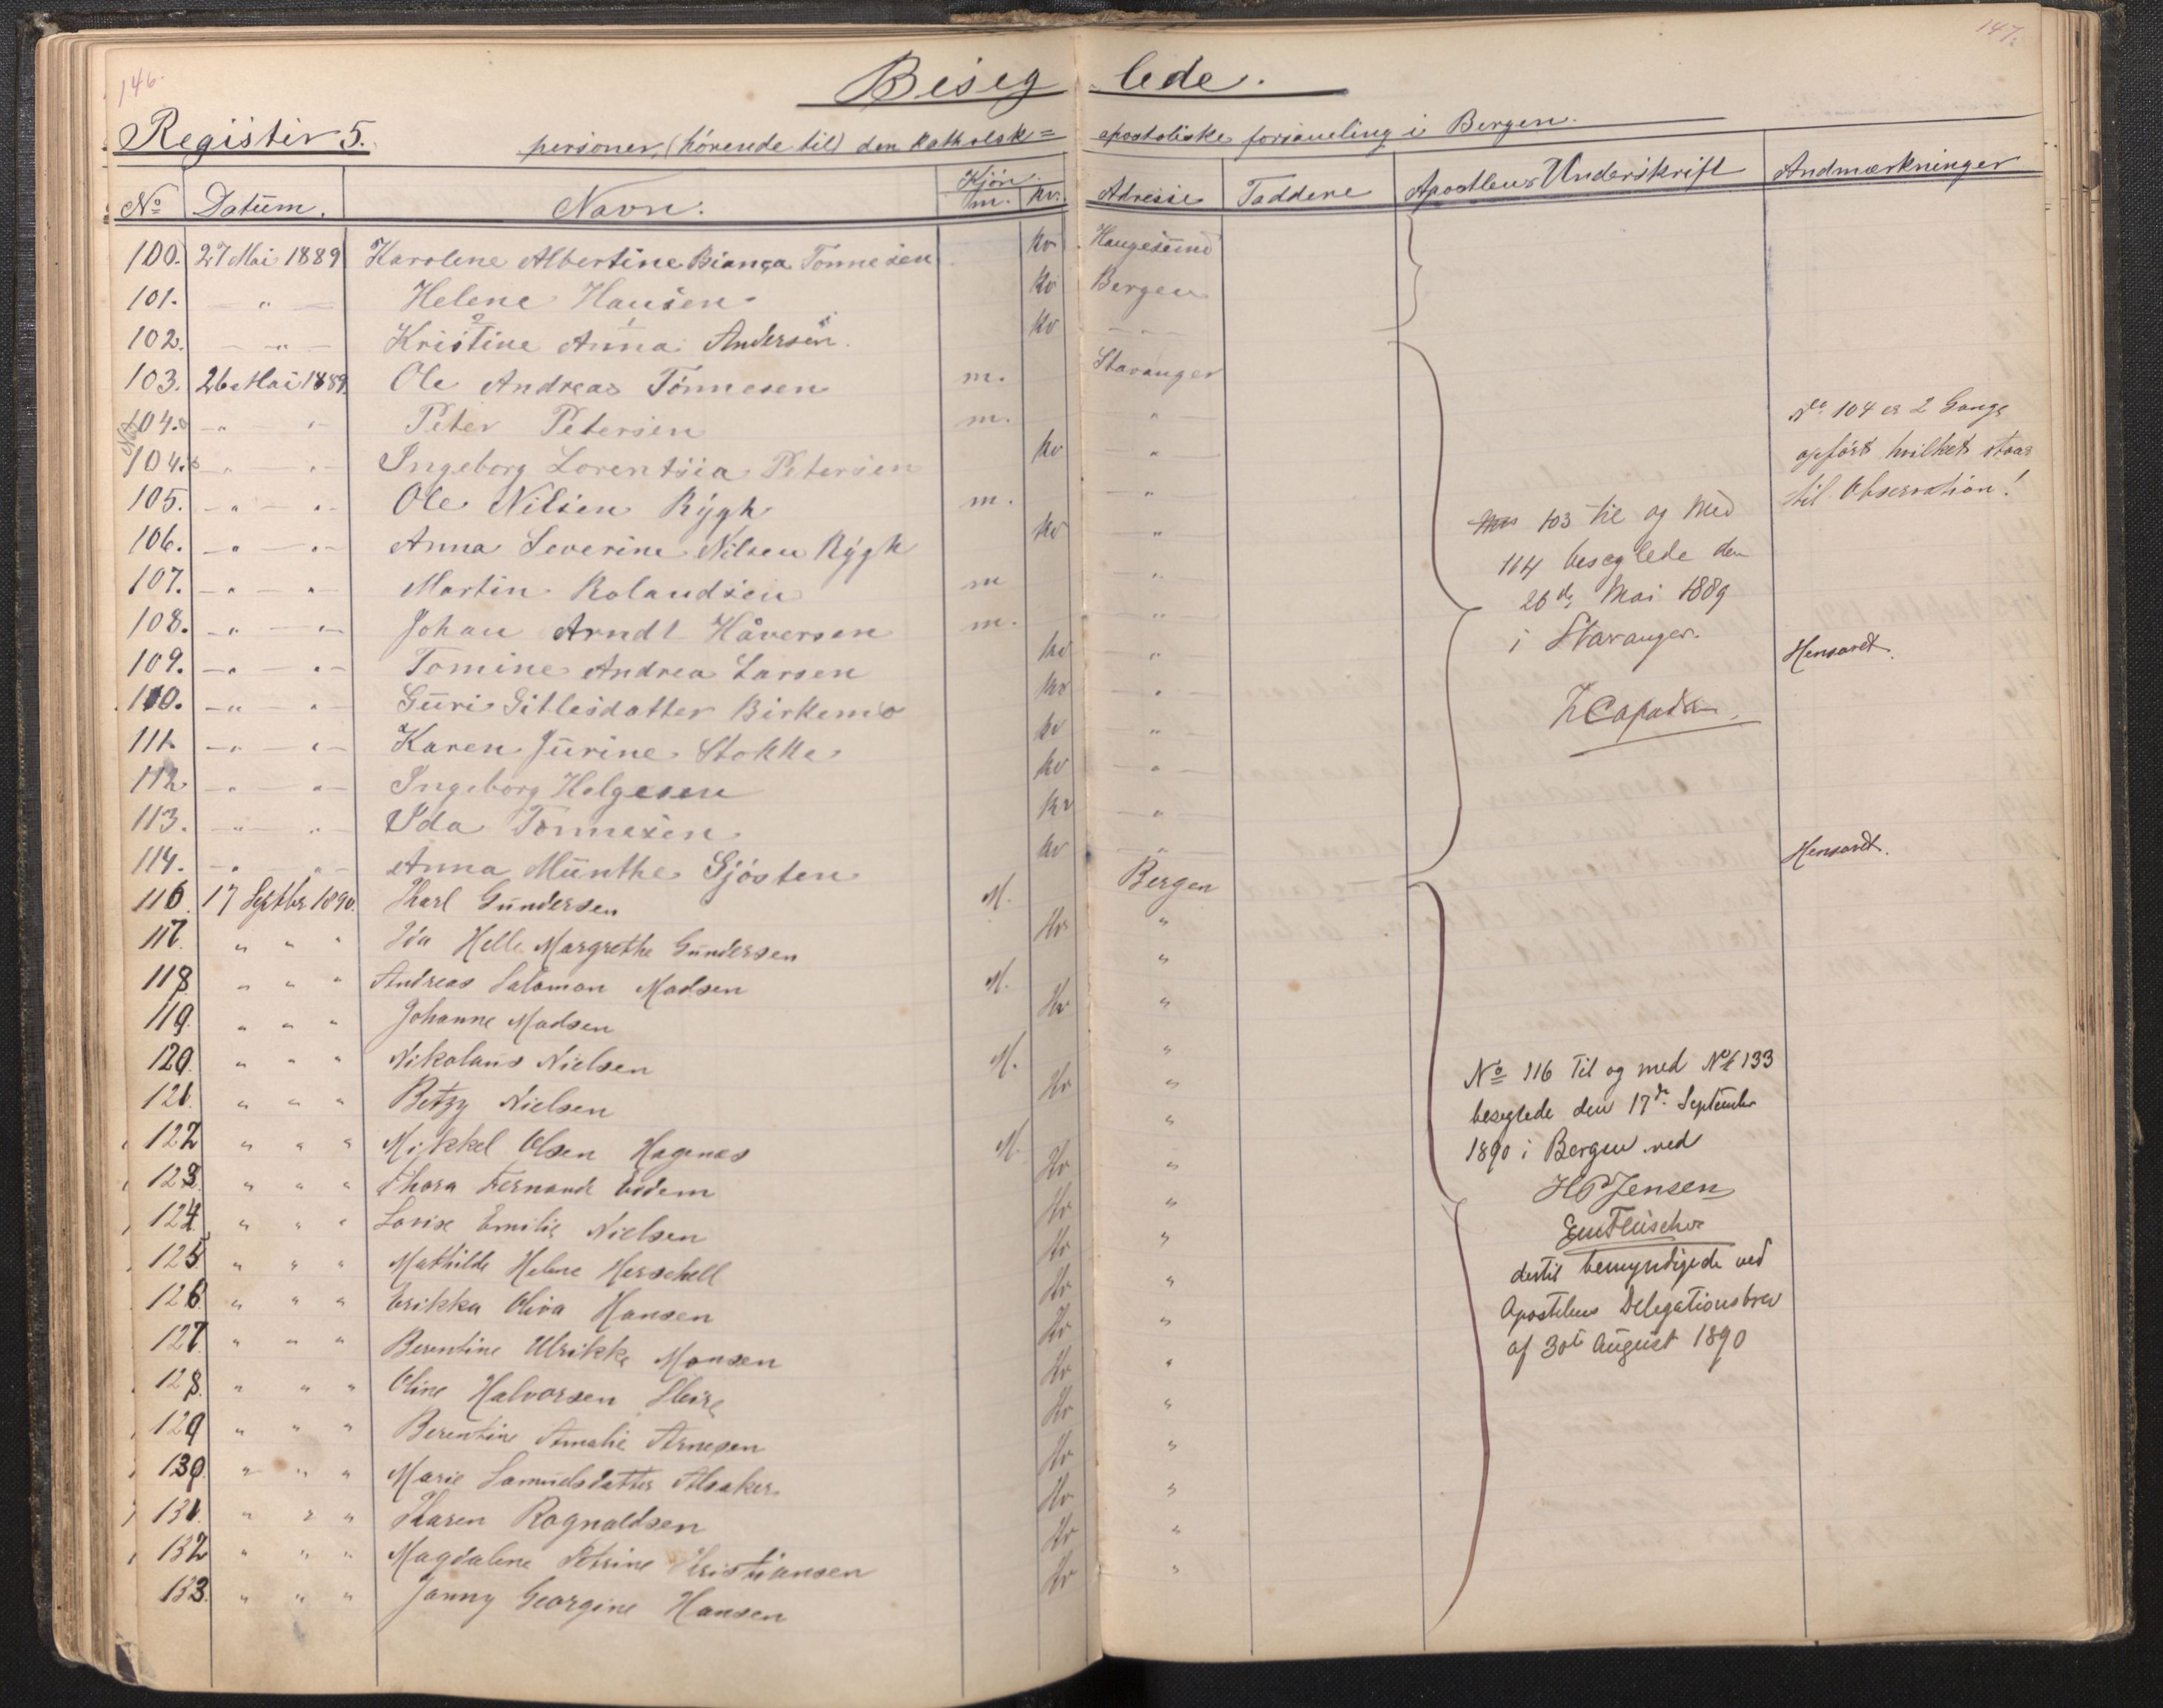 146.
147.
Beseglede.
Register 5. personer, (hørende til) den katholsk= apostoliske forsamling i Bergen.
No Datum. Navn. Kjøn. m. kv. Adresse Faddere Apostlens Underskrift Andmærkninger
100. 27 Mai 1889 Karoline Albertine Bianca Tonnesen kv Haugesund
101. — " — Helene Hansen kv Bergen
102. — " — Kristine Anna Andersen kv — " —
103. 26 Mai 1889 Ole Andreas Tönnesen m. Stavanger
104. a — " — " — Peter Petersen m. " —
104. b " — " — Ingeborg Lorentsia Petersen kv — " —
105. — " — " — Ole Nilsen Rygh m. — " —
106. — " — " — Anna Severine Nilsen Rygh kv "
107. — " — " — Martin Rolandsen m — " —
108. — " — " — Johan Arndt Håversen m. — " —
109. — " — " — Tomine Andrea Larsen kv — " — Hensovet.
110. — " — " — Guri Gitlesdatter Birkemo kv — " —
111. — " — " — Karen Jurine Stokke kv — " —
112 — " — " — Ingeborg Helgesen kv — " —
113. — " — " — Ida Tonnesen kv — " —
114. — " — " — Anna Munthe Gjösten kv — " — Hensovet.
116 17 Septbr 1890. Karl Gundersen M. Bergen
117. " " " Ida Helle Margrethe Gundersen Kv "
118. " " " Andreas Salomon Madsen M. "
119. " " " Johanne Madsen Kv "
120. " " " Nikolaus Nielsen M. "
121. " " " Betzy Nielsen Kv "
122 " " " Mikkel Olsen Hagenæs M. "
123. " " " Thora Fernande Eidem Kv "
124. " " " Lovise Emilie Nielsen Kv "
125. " " " Mathilde Helene Herschell Kv "
126. " " " Erikka Oliva Hansen Kv "
127. " " " Berentine Ulrikke Monsen Kv "
128. " " " Oline Halvorsen Kv "
129 " " " Berentine Amalie Arnesen Kv "
130. " " " Marie Samuelsdatter Alsaker Kv "
131. " " " Karen Ragnaldsen Kv "
132 " " " Magdalene Petrine Kristiansen Kv "
133. " " " Janny Georgine Hansen Kv "
No. 104 er 2 Gange
opført hvilket staar
til Observation!
103 til og Med
114 beseglede den
26de Mai 1889
i Stavanger.
Capadose
No 116 Til og med No 133
beseglede den 17de September
1890 i Bergen ved
HPJensen
Em Fleischer
dertil bemyndigede ved
Apostelens Delegationsbrev
af 30te August 1890